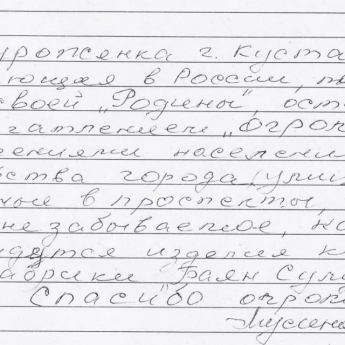 уроженка г. Куста
ющая в России, п
своей „Родины", ост
чатлением „огро
ениями населени
ства города (ули
ные в проспекты,
незабываемое, на
дятся изделия к
абрики Баян Сулу
Спасибо огро